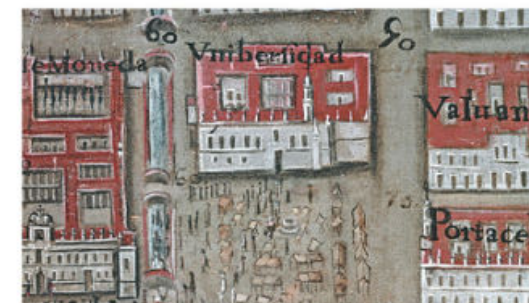 60
50
Vniberſidad
eMoneda
Valuan
75.
Portace